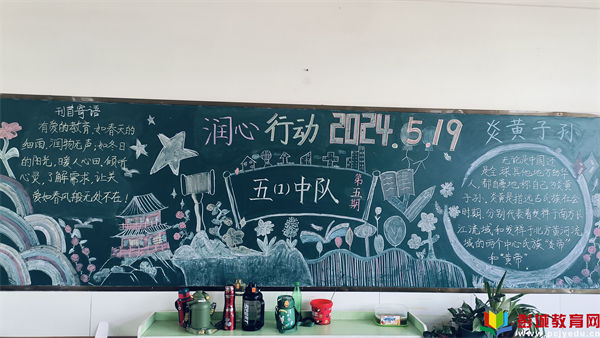 刊首寄语
有爱的教育，如春天的
细雨，润物无声；如冬日
的阳光，暖人心田，倾听
心灵，了解需求，让关
爱如春风般无处不在！
润心行动 2024.5.19
五(1)中队
第五期
炎黄子孙
无论是中国还
是全球其他地方的华
人，都自称自己为炎黄
子孙，炎黄是指远古氏族社会
时期，分别代表着发祥于南方长
江流域和发祥于北方黄河流
域的两个中心氏族"炎帝"
和"黄帝"。
彭城教育网
www.pcjyedu.cn